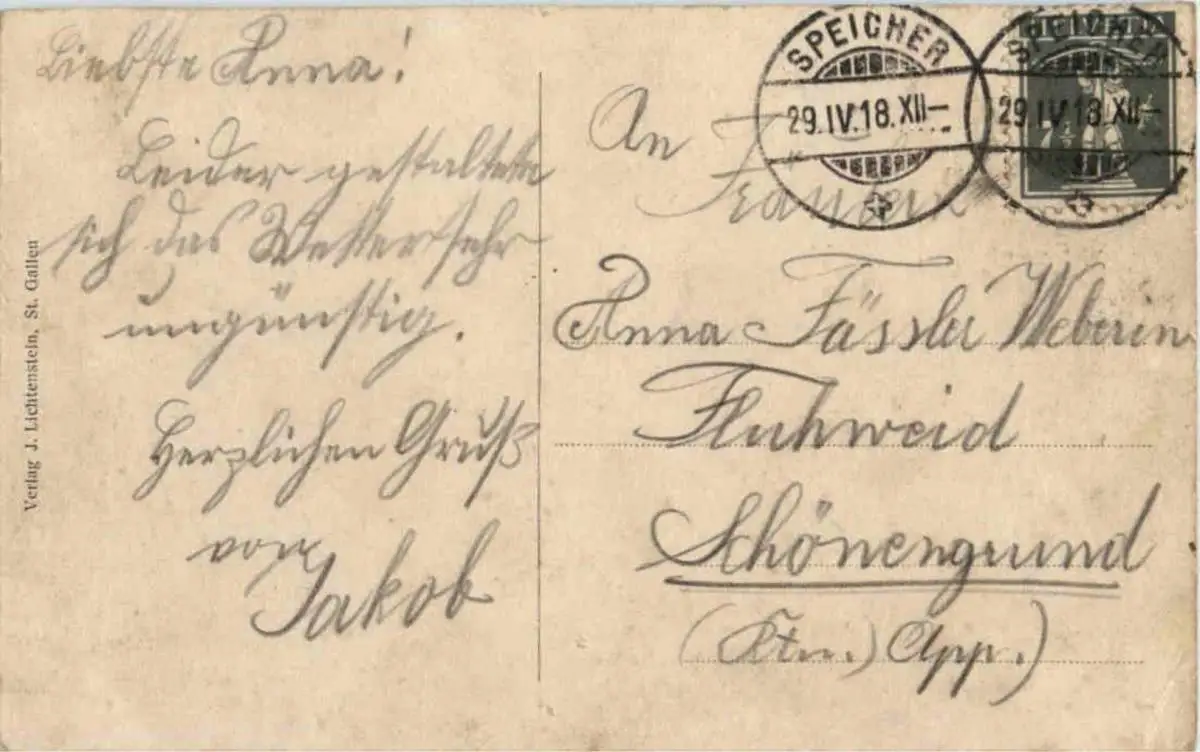 Liebste Anna!
Leider gestaltete
sich das Wetter sehr
ungünstig.
Herzlichen Gruß
von
Jakob
Verlag J. Lichtenstein, St. Gallen
SPEICHER
29.IV.18.XII—
SPEICHER
29.IV.18.XII—
7½
An
Fräulein
Anna Fässler Weberin
Fluhweid
Schönengrund
(Ktn.) App.)